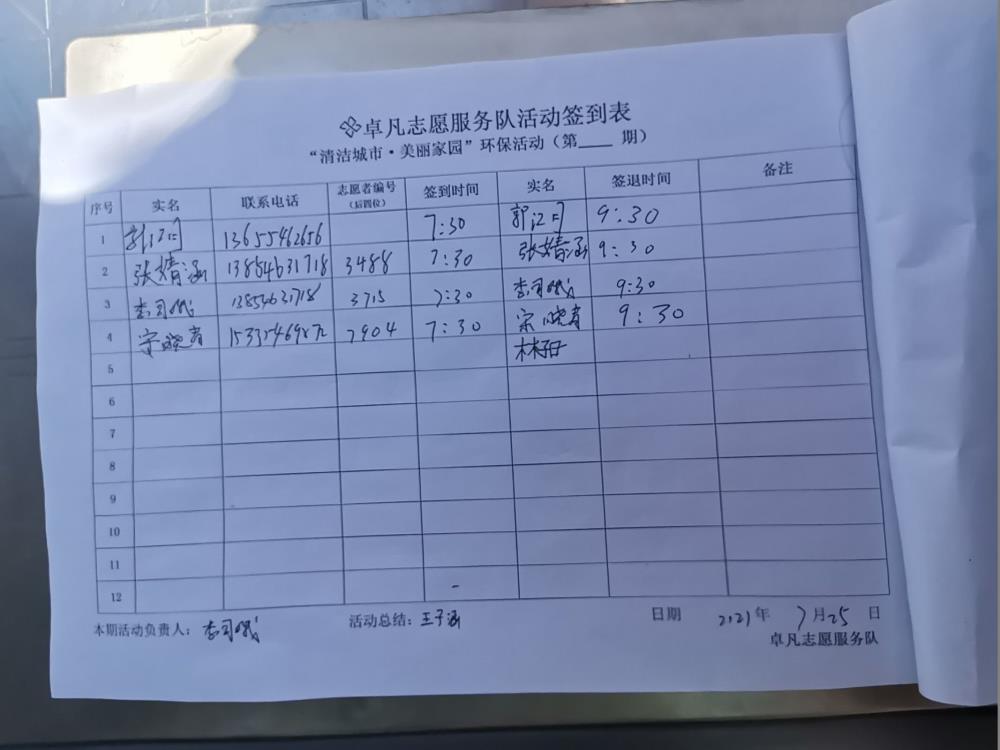 卓凡志愿服务队活动签到表
“清洁城市·美丽家园”环保活动（第____期）
序号 实名 联系电话 志愿者编号（后四位） 签到时间 实名 签退时间 备注
1 13655462656 7:30 9:30
2 张婧涵 13854631718 3488 7:30 张婧涵 9:30
3 李司晓 13854631718 3715 7:30 李司晓 9:30
4 宗晓青 7904 7:30 宗晓青 9:30
5
6
7
8
9
10
11
12
本期活动负责人： 活动总结：王子涵 日期 2021年7月25日
卓凡志愿服务队